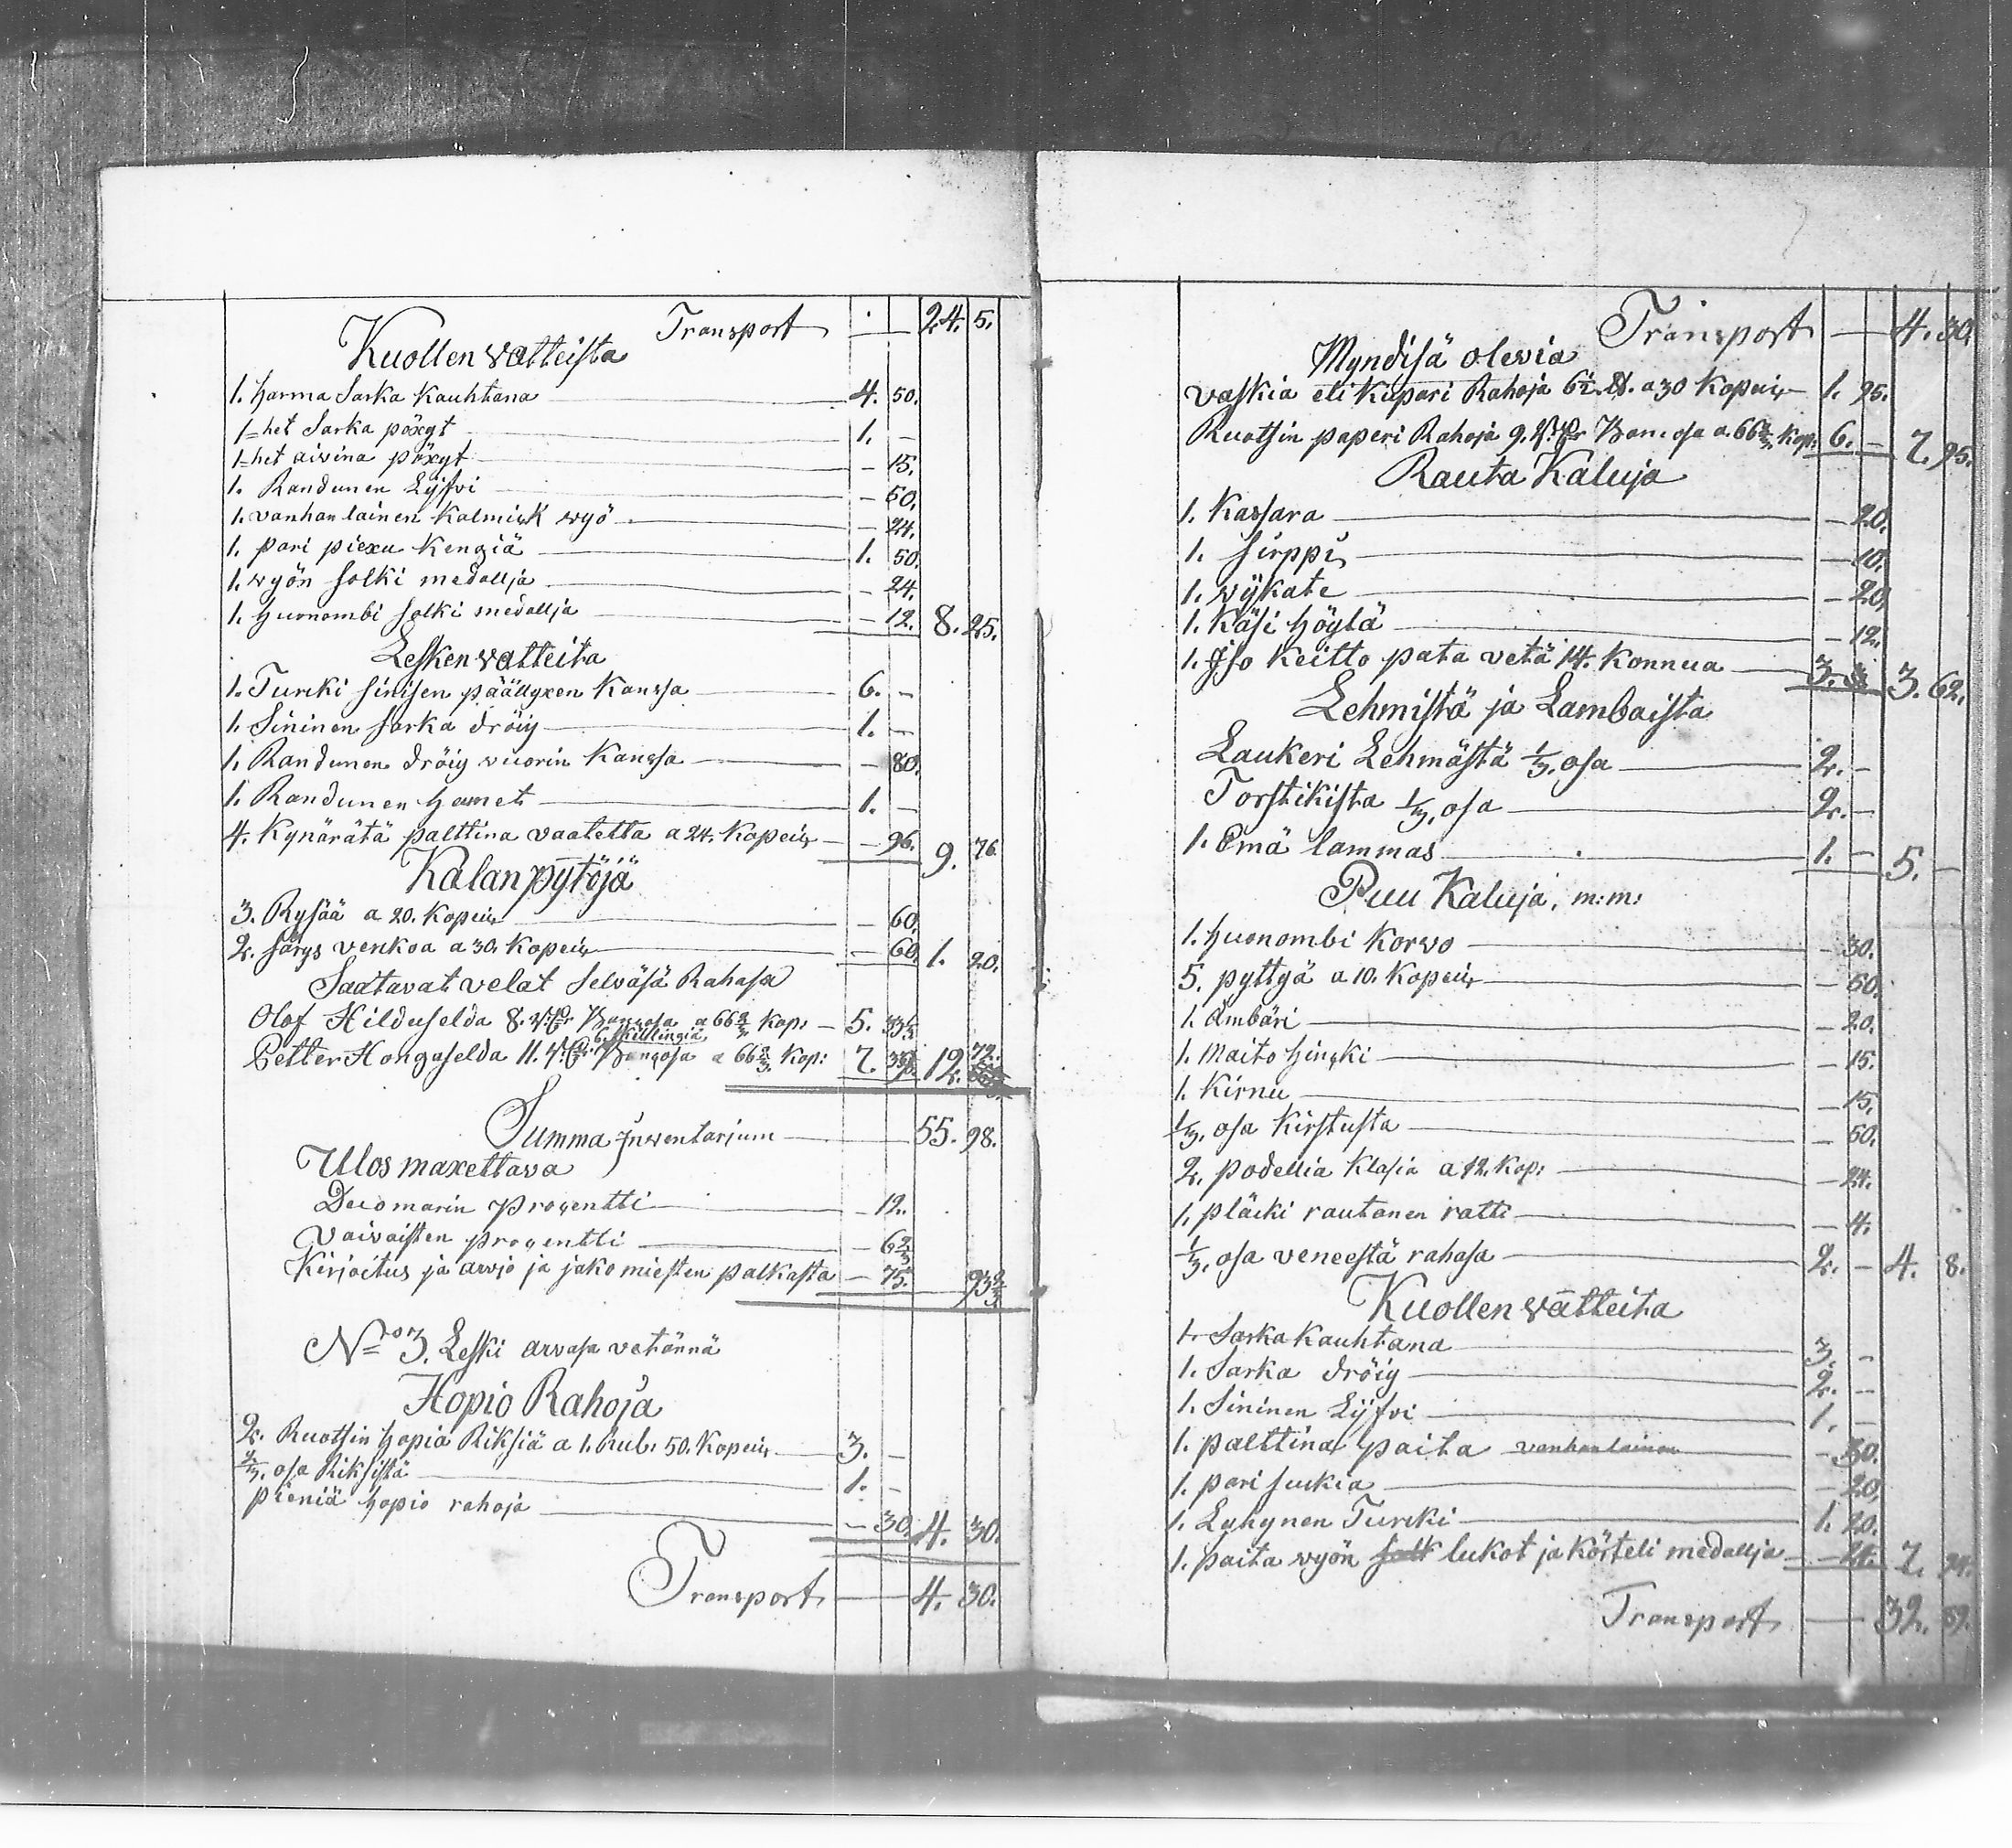 Transport — 24. 5.
Kuollen watteista
1. harma sarka kauhtana 4. 50.
1=het sarka pöxyt 1. –
1=het aivina pöxyt – 15.
1. Randunen Lijfvi – 50.
1. vanhanlainen Kalmink wyö – 24.
1. pari piexu kengiä 1. 50.
1. wyön solki medallja – 24.
1. huonombi solki medallja – 12. 8. 25.
Lesken watteita
1. Turcki sinisen päällyxen kanssa 6. –
1. Sininen sarka dröig 1. –
1. Randunen dröig vuorin kanssa – 80.
1. Randunen hamet 1. –
4. Kynärätä palttina vaatetta a 24. Kopeix – 96. 9. 76.
Kalanpytöjä
3. Rysää a 20. Kopeix – 60.
2. särgs verkoa a 30. Kopeix – 60. 1. 20.
Saatavat velat selväsä Rahasa
Olof Hilduselda 8. Bancosa a 66 2/3 kop: – 5. 33 1/3
6 skillingiä
Petter Hongaselda 11. Bancosa a 66 2/3 kop: 7. 12. 72.
Summa Inwentarium 55. 98.
Ulos maxettava
Decomarin procentti – 12.
Vaivaisten procentti – 6 2/3
Kirjoitus ja arvio ja jako miesten palkasta – 75. 93 2/3
No 3. Leski arvasa vetännä
Hopio Rahoja
2. Ruotsin hopia Riksiä a 1. Rub: 50. Kopeix 3. –
2/3. osa Riksistä 1. –
pieniä hopio rahoja – 30. 4. 30.
Transport — 4. 30.
Transport — 4. 30.
Myndisä olevia
vaskia eli kupari Rahoja 6 1/2 a 30 kopeix 1. 95.
Ruotsin paperi Rahoja 9. Bancosa a 66 2/3 kop: 6. – 7. 95.
Rauta Kaluja
1. Kassara – 20.
1. sirppi – 10.
1. wijkate – 20.
1. Käsi höylä – 12.
1. Iso keitto pata vetä 14. konnua 3. – 3. 62.
Lehmistä ja Lambaista
Laukeri Lehmästä 1/3. osa 2. –
Torstikista 1/3. osa 2. –
1. Emä lammas 1. – 5. –
Puu Kaluja, m:m:
1. huonombi korvo – 30.
5. pyttyä a 10. kopeix – 50.
1. Ämbäri – 20.
1. maito hincki – 15.
1. Kirnu – 15.
1/3. osa Kirstusta – 50.
2. podellia klasia a 12. kop: – 24.
1. pläcki rautanen ratti – 4.
1/3. osa veneestä rahasa 2. – 4. 8.
Kuollen watteita
1. Sarka kauhtana 3. –
1. Sarka dröig 2. –
1. Sininen Lijfvi 1. –
1. palttina paita vanhanlainen – 30.
1. pari sukia – 20.
1. Lyhynen Turcki 1. 20.
1. paita wyön solk lukot ja körteli medallja – 24. 7. 94.
Transport — 32. 89.